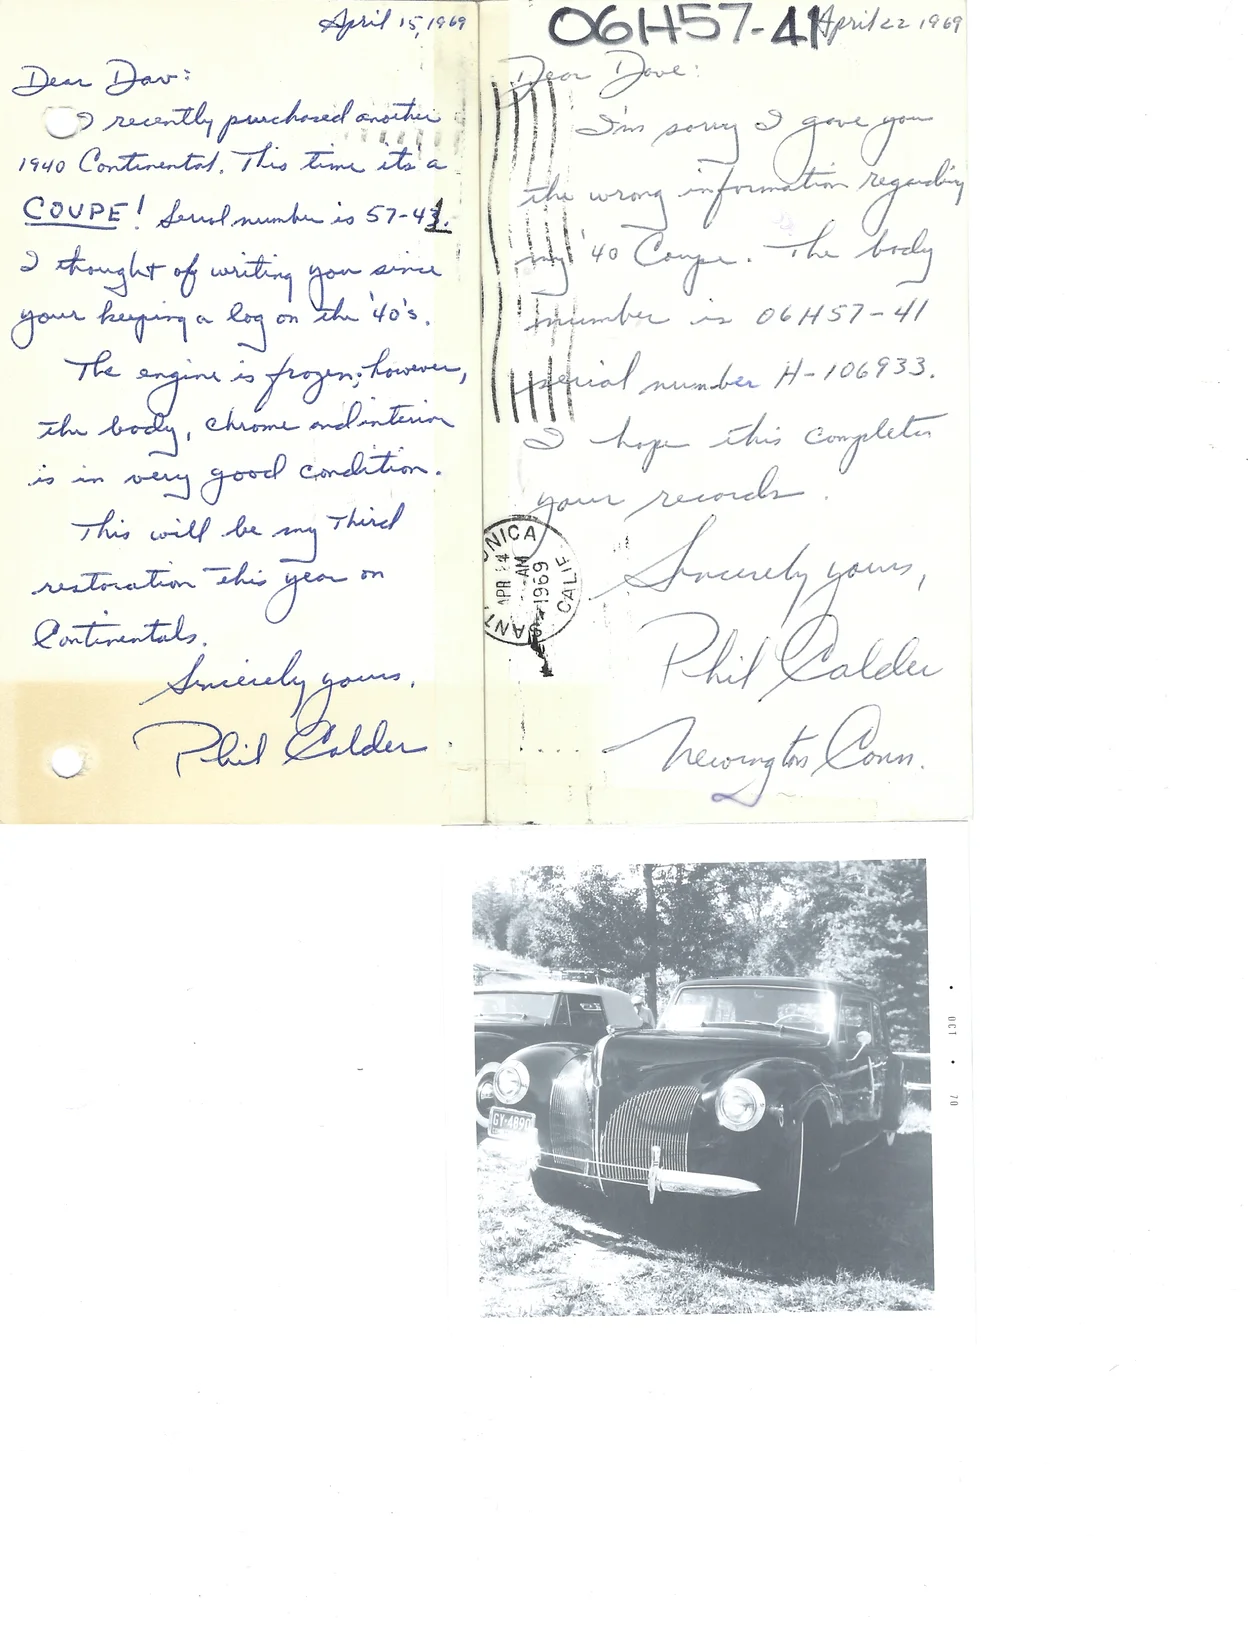 April 15, 1969
Dear Dav:
I recently purchased another
1940 Continental. This time its a
COUPE! Serial number is 57-41.
I thought of writing you since
your keeping a log on the '40's.
The engine is frozen; however,
the body, chrome and interior
is in very good condition.
This will be my Third
restoration this year on
Continentals.
Sincerely yours,
Phil Calder
06H57-41
April 22 1969
Dear Dave:
I'm sorry I gave you
the wrong information regarding
my '40 Coupe. The body
number is 06H57-41
serial number H-106933.
I hope this completes
your records.
Sincerely yours,
Phil Calder
Newington Conn.
SANTA MONICA CALIF
APR 24
AM
1969
GY·4890
• OCT • 70